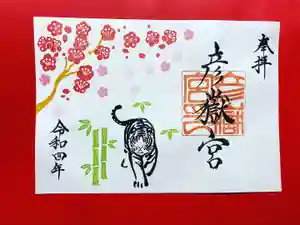 奉拝
彦嶽宮
令和四年